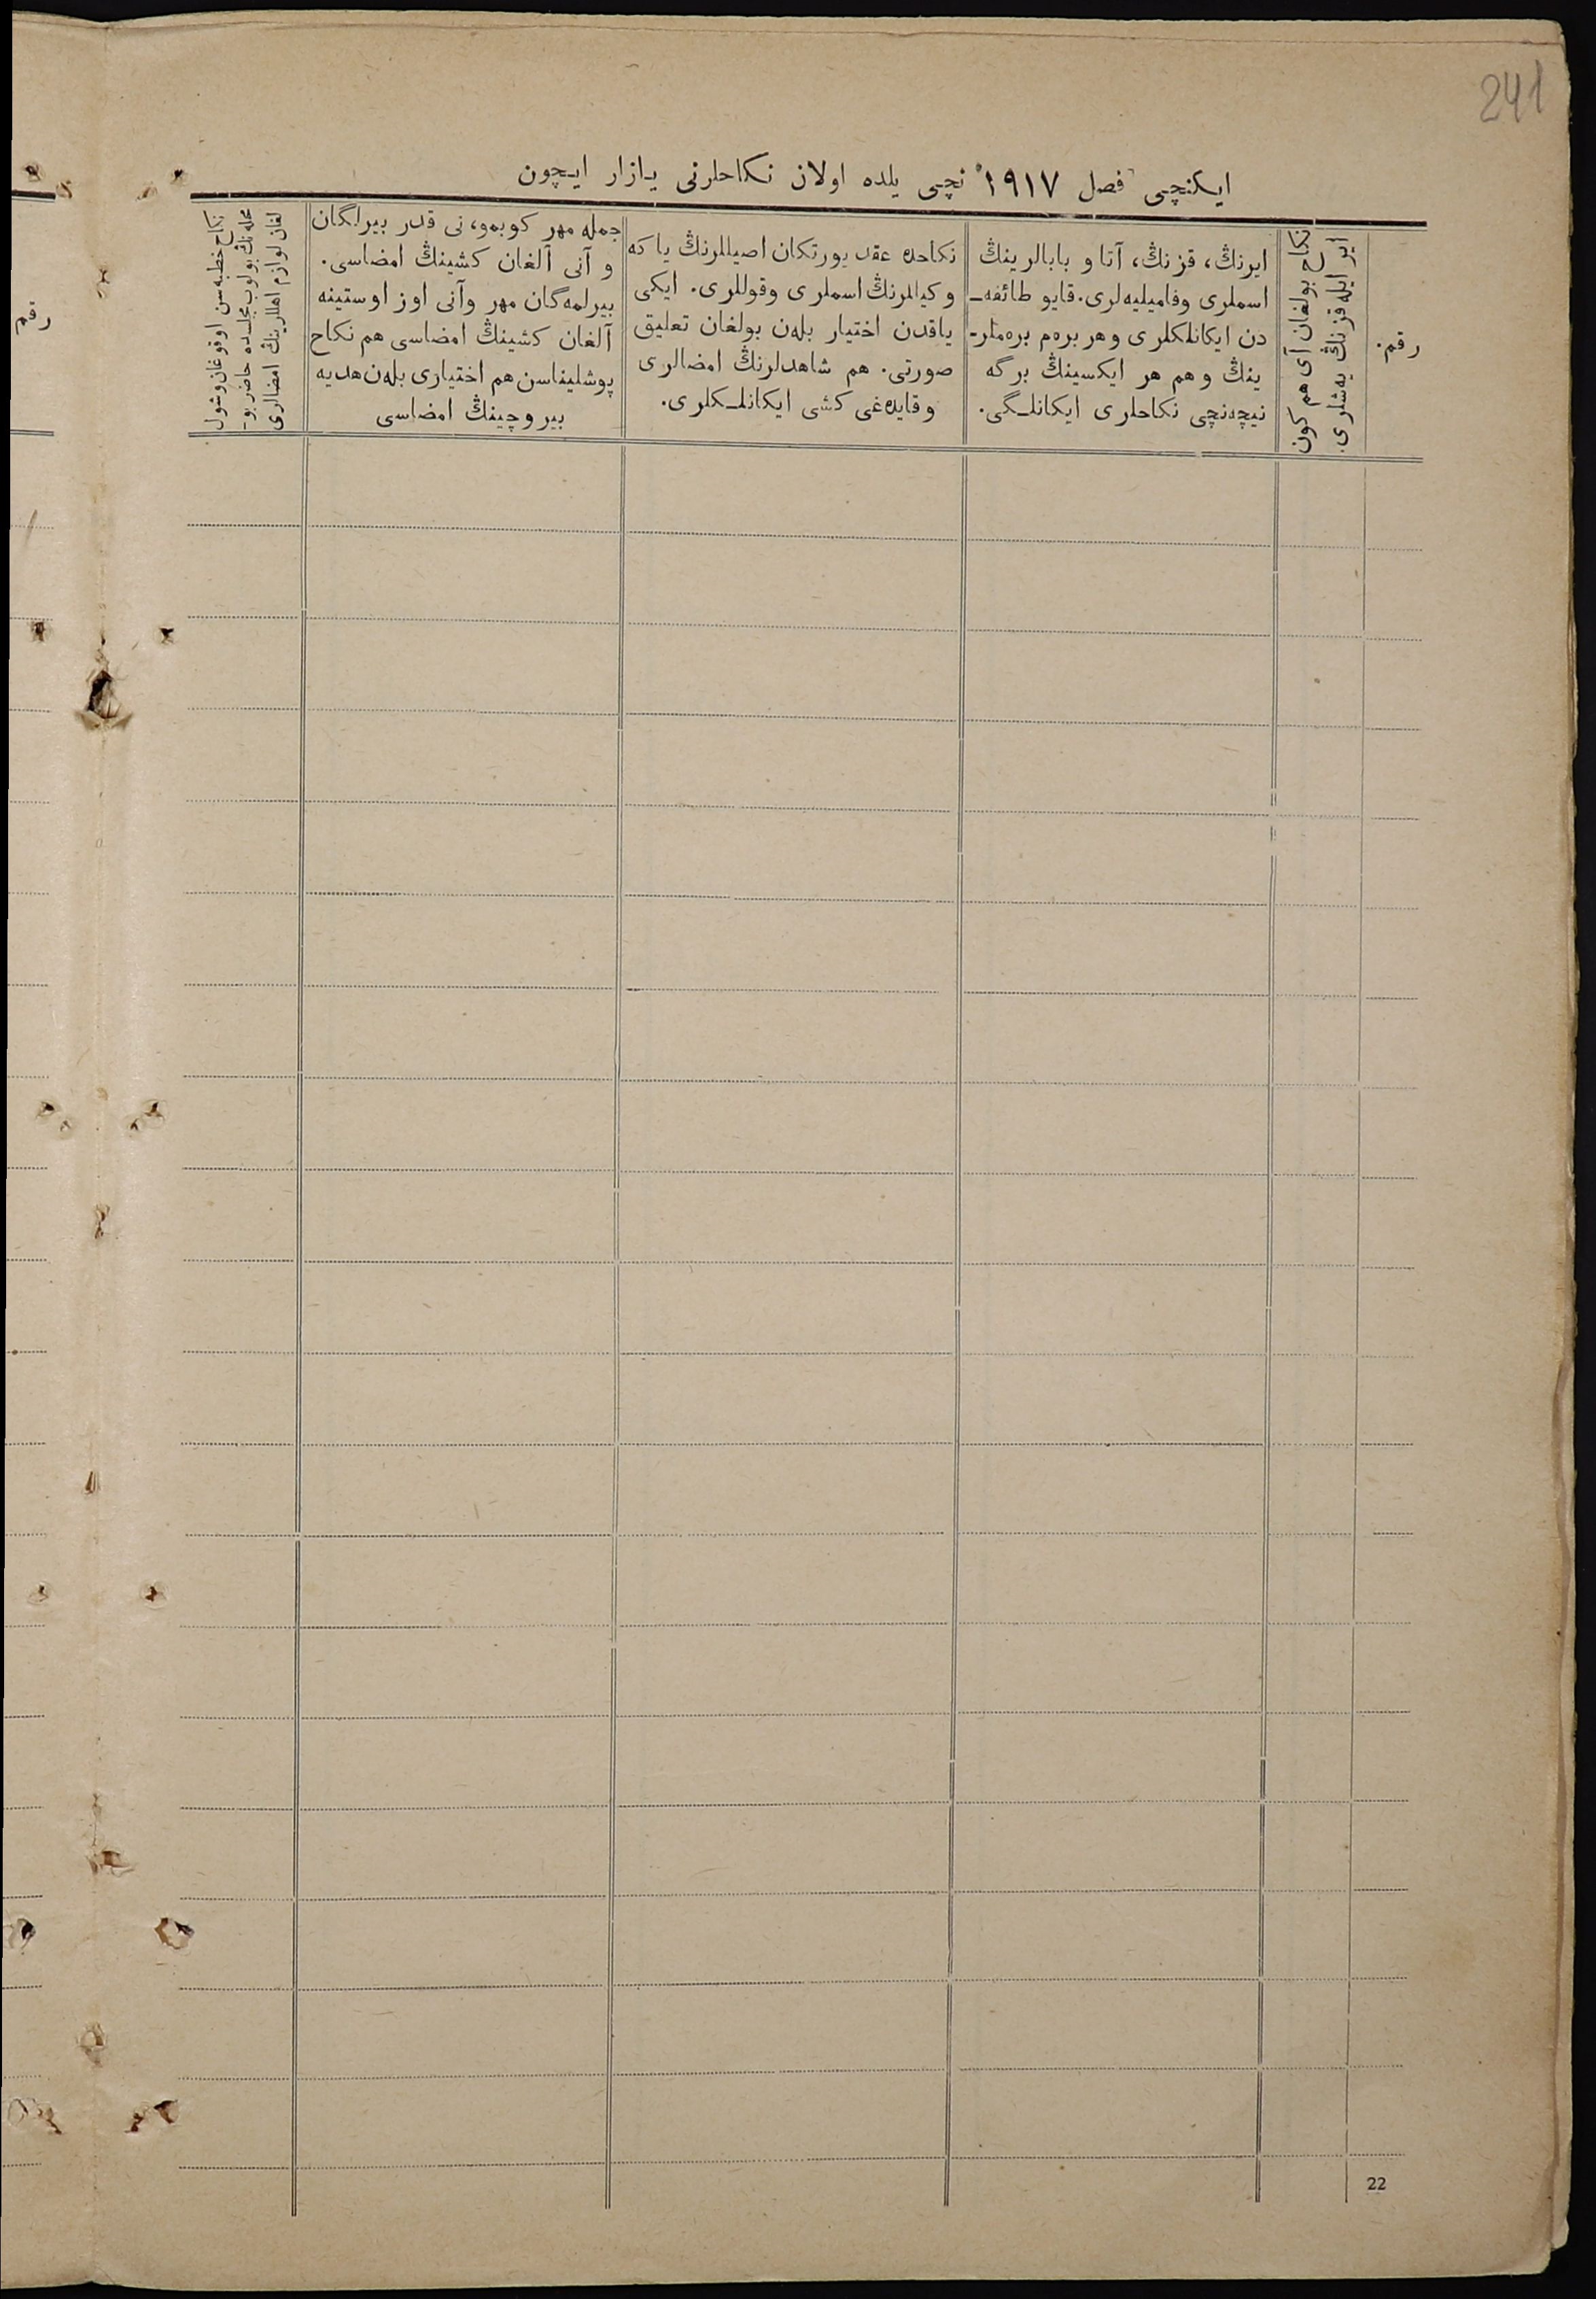 241
ایکنچی فصل ۱۹۱۷ نچی یلده اولان نکاحلرنی یازار ایچون
رقم.
نکاح بولغان آی هم کون
ایر ایله قزنڭ یەشلری.
ایرنڭ، قزنڭ، آتا و بابالرینڭ
اسملری وفامیلیەلری. قایو طائفه‌ـ
دن ایکانلکلری وهر برەم برەملرـ
ینڭ وهم هر ایکسینڭ برگه
نیچەنچی نکاحلری ایکانلـگی.
نکاحده عقد یورتکان اصیللرنڭ یا که
وکیللرنڭ اسملری وقوللری. ایکی
یاقدن اختیار بلەن بولغان تعلیق
صورتی. هم شاهدلرنڭ امضالری
وقایدەغی کشی ایکانلـکلری.
جمله مهر کوبمو، نی قدر بیرلگان
و آنی آلغان کشینڭ امضاسی.
بیرلمەگان مهر وآنی اوز اوستینه
آلغان کشینڭ امضاسی هم نکاح
پوشلیناسن هم اختیاری بلەن هدیه
بیروچینڭ امضاسی
نکاح خطبەسن اوقوغان وشول
محلەنڭ بولوب مجلسده حاضر بوـ
لغان لوازم اهللرینڭ امضالری
رقم
22